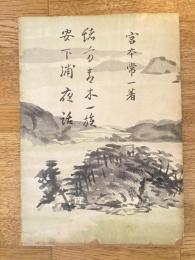 宮本常一著
徳分青木一族
安下浦夜話